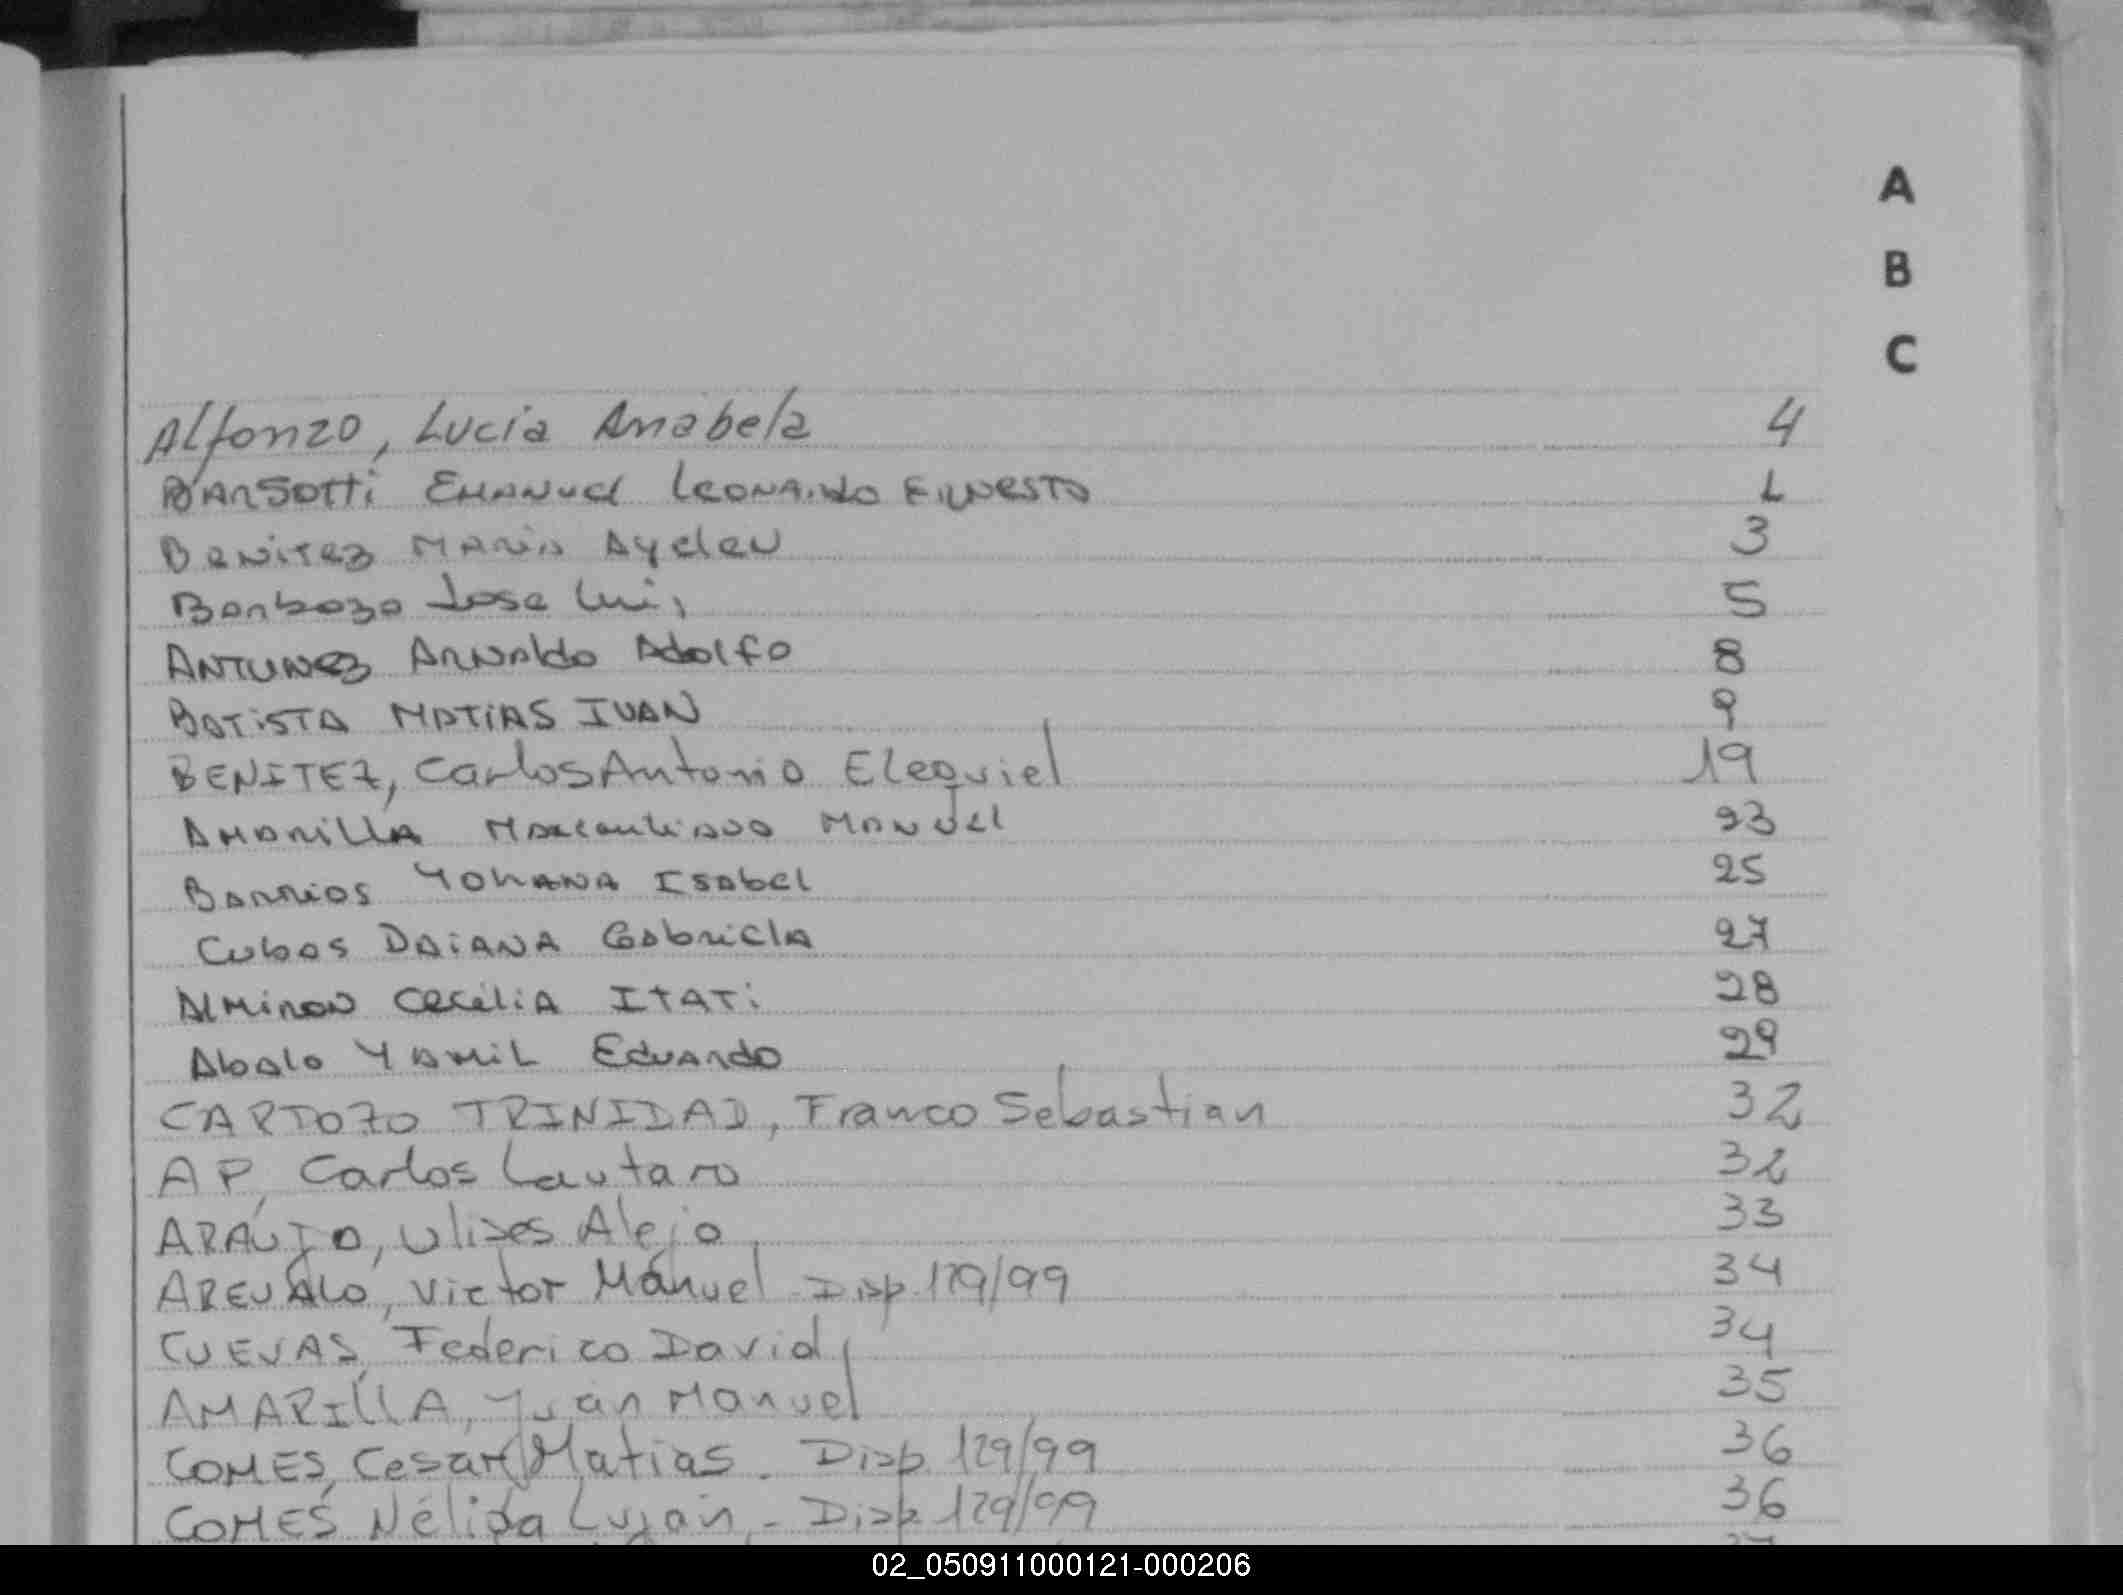 A
B
C
Alfonzo, Lucia Anabela 4
BARSOTTi EMANUEL LEONARDO ERNESTO
BENITEZ MARIA AYELEN 3
Barbozo Jose Luis 5
ANTUNEZ ARNALDO ADOLFO 8
BATISTA MATIAS IVAN 9
BENITEZ, Carlos Antonio Elequiel 19
AMARILLA MANUEL 23
Barrios YOHANA ISABEL 25
Cubas DAIANA GABRIELA 27
ALMIRON CECILIA ITATI 28
Abalo YAMIL Eduardo 29
CARDOZO TRINIDAD, Franco Sebastian 32
AP, Carlos Lautaro 32
ARAUJO, Ulises Alejo 33
AREVALO, Victor Manuel - Disp. 129/99 34
CUEVAS, Federico David 34
AMARILLA, Juan Manuel 35
GOMES, Cesar Matias. Disp. 129/99 36
GOMES Nélida Luján - Disp. 129/99 36
02_050911000121-000206